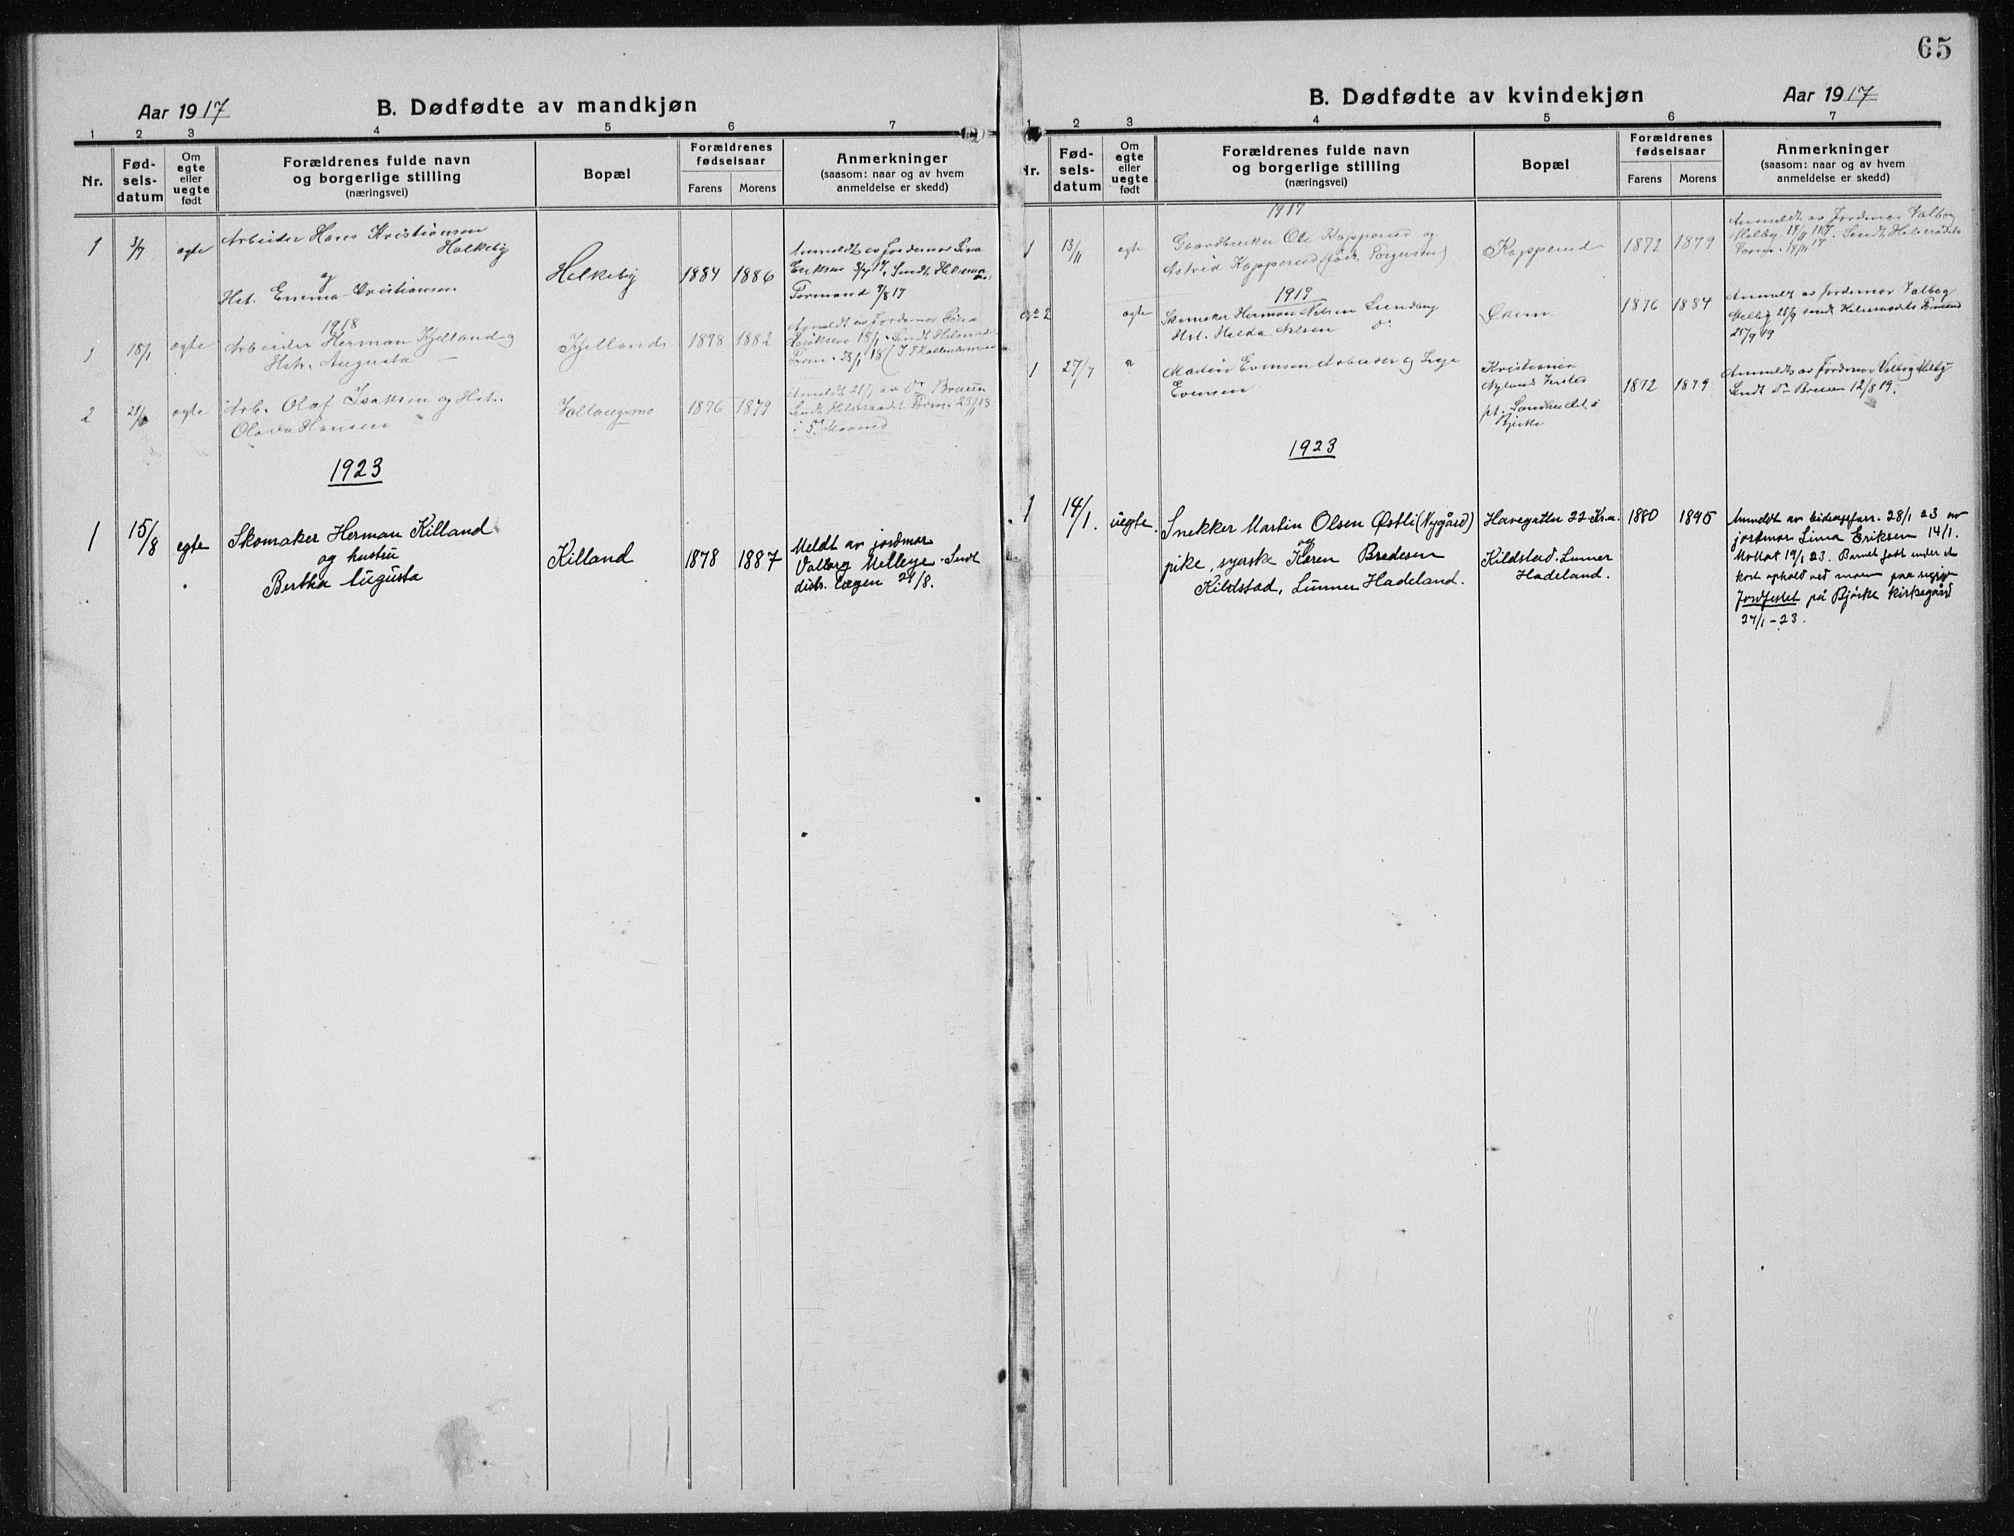 65
Aar 1917
B. Dødfødte av mandkjøn
1 2 3 4 5 6 7
Nr.
Fød-
sels-
datum
Om
egte
eller
uegte
født
Forældrenes fulde navn
og borgerlige stilling
(næringsvei)
Bopæl
Forældrenes
fødselsaar
Farens Morens
Anmerkninger
(saasom: naar og av hvem
anmeldelse er skedd)
1 3/7 egte Arbeider Hans Kristiansen
Halkeby
og
Hst. Emma Kristiansen
Helkeby 1884 1886
Anmeldt av Jordemor
Eriksen 3/7 17. Sendt
Formand 9/8 17
1918
1 18/1 egte Arbeider Herman Kjelland og
Hstr. Augusta
Kjelland 1878 1882
Anmeldt av Jordemor
Eriksen 18/1. Sendt
Form. 23/1 18
2 21/6 egte Arb. Olaf Isaksen og Hst.
Olava Hansen
1876 1879
Anmeldt 21/ av Dr Bruun
Sendt Helseraadet Form. 23/ 18
i 5te Maaned
1923
1 15/8 egte Skomaker Herman Killand
og hustru
Bertha Augusta
Killand 1878 1887
Meldt av jordmor
Valborg Melbye. Sendt
distr. lægen 24/8.
B. Dødfødte av kvindekjøn
Aar 1917
1 2 3 4 5 6 7
Nr.
Fød-
sels-
datum
Om
egte
eller
uegte
født
Forældrenes fulde navn
og borgerlige stilling
(næringsvei)
Bopæl
Forældrenes
fødselsaar
Farens Morens
Anmerkninger
(saasom: naar og av hvem
anmeldelse er skedd)
1917
1 13/11 egte Gaardbruker Ole Kopperud og
Astrid Kopperud (født Torgersen)
Kopperud 1872 1879
Anmeldt av Jordemor Valborg
Melby 14/11 1917. Sendt Helserådets
Form. 14/11 17
1919
2 egte Skomaker Herman Nilsen
Hst. Helda Nilsen
Økern 1876 1884
Anmeldt av Jordemor Valborg
Melby 28/9 sendt Helseraadets Formand
28/9 19
1 27/7 " Martin Evensen Arbeider og
Evensen
Kristiania
Nyland
pt.
Bjerke
1872 1879
Anmeldt av Jordemor Valborg Melby
Sendt Dr Bruun 12/8 19.
1923
1 14/1. uegte. Snekker Martin Olsen Østli (Nygård)
og
pike, syerske Karen Bredesen
Kildstad, Lunner Hadeland.
Havegaten 22 Kr.a.
Kildstad. Lunner
Hadeland.
1880 1895
Anmeldt av bidragsfarr. 28/1 23 av
jordmor Lina Eriksen 14/1.
Mottat 19/1 23. Barnet født under et
kort ophold ved moren paa
Jordfestet på Bjerke kirkegård
27/1 - 23.